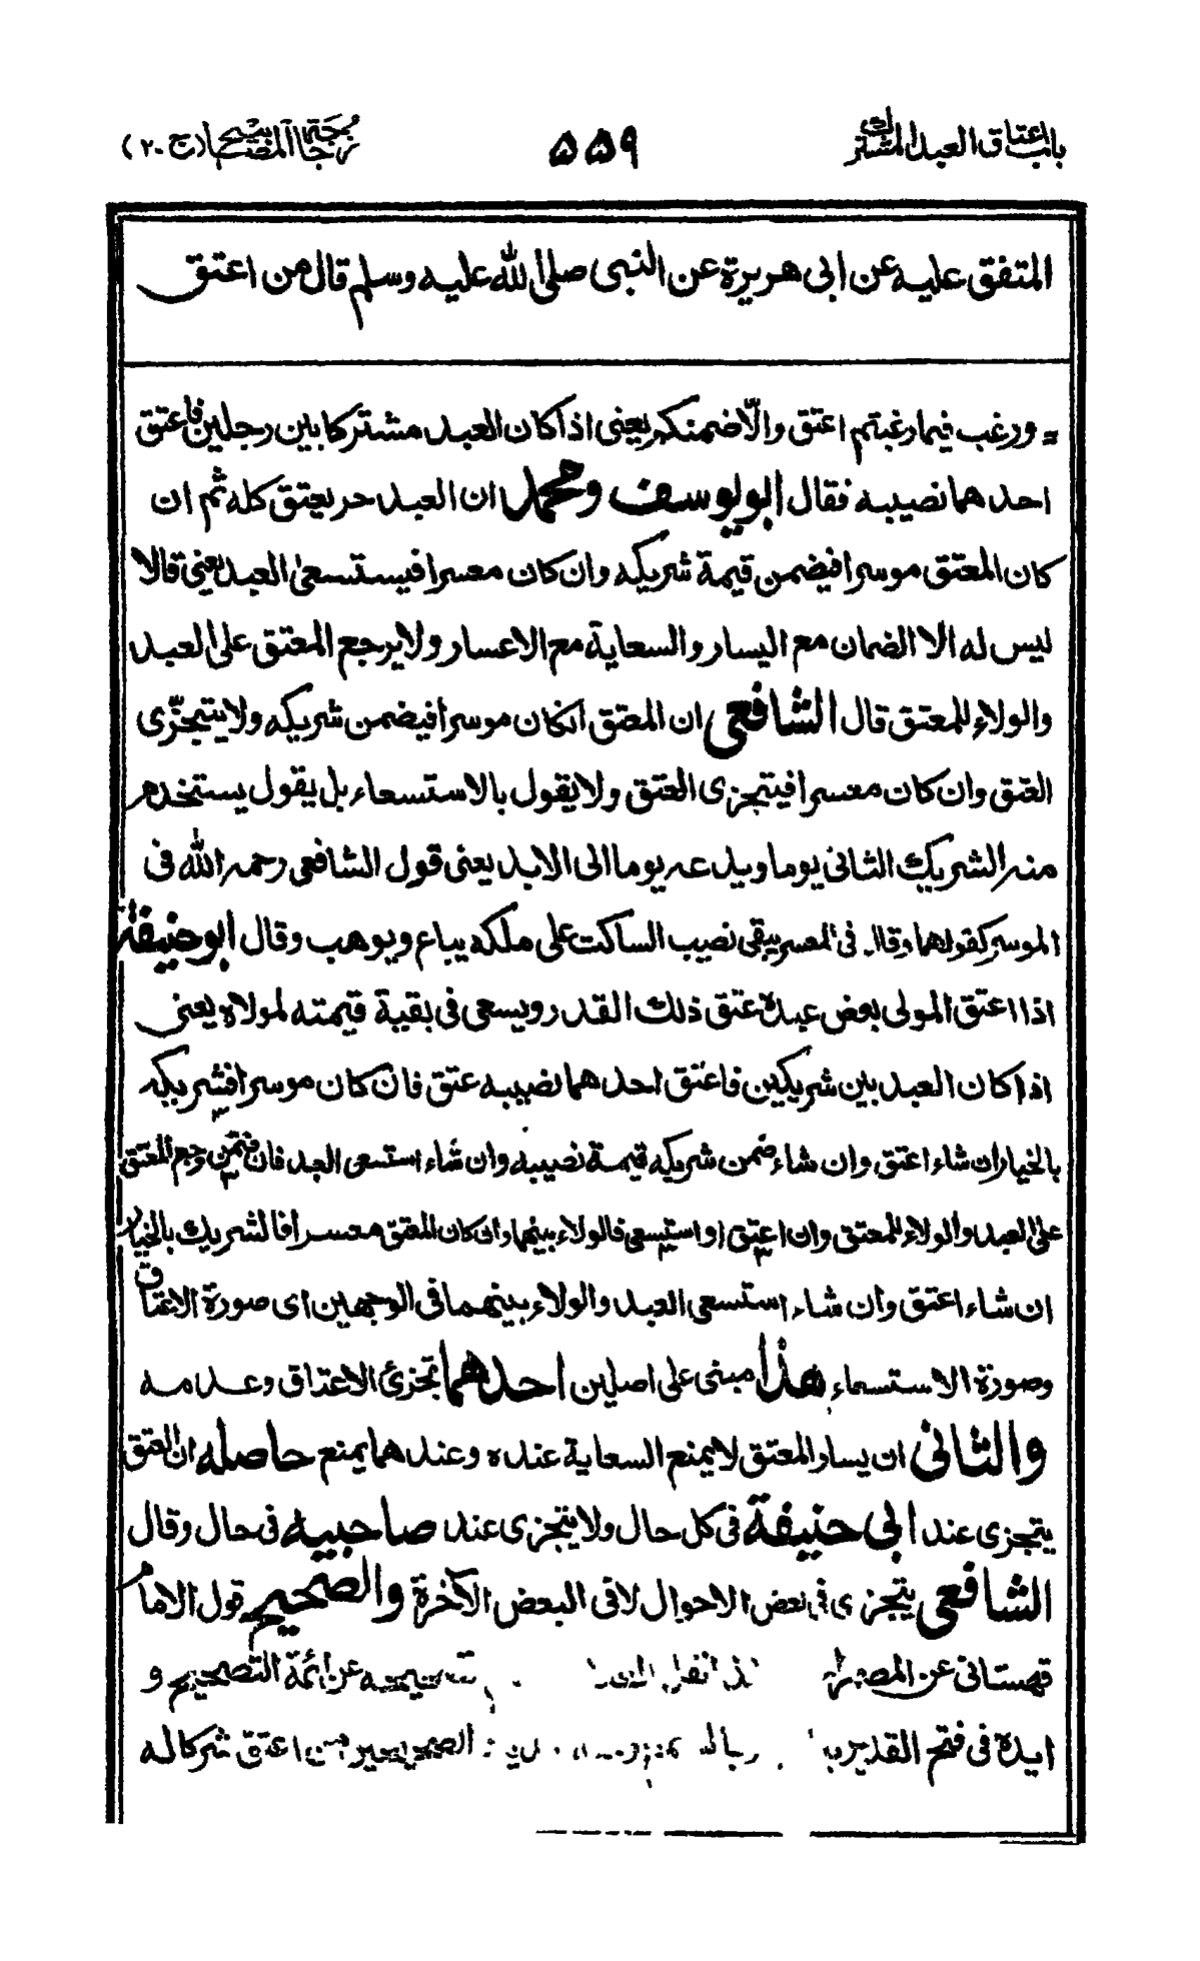 باب اعتاق العبد المشترك ۵۵۹ زجاجة المصابيح (ج ۲۰)
المتفق عليه عن ابى هريرة عن النبى صلى الله عليه وسلم قال من اعتق
= ورغب فيما رغبتم اعتق والّا ضمنكم يعنى اذا كان العبد مشتركا بين رجلين فاعتق
احدهما نصيبه فقال ابويوسف ومحمد ان العبد حر يعتق كله ثم ان
كان المعتق موسرا فيضمن قيمة شريكه وان كان معسرا فيستسعى العبد يعنى قالا
ليس له الا الضمان مع اليسار والسعاية مع الاعسار ولا يرجع المعتق على العبد
والولاء للمعتق قال الشافعى ان المعتق انكان موسرا فيضمن شريكه ولا يتجزّى
العتق وان كان معسرا فيتجزى العتق ولا يقول بالاستسعاء بل يقول يستخدم
منه الشريك الثانى يوما ويدعه يوما الى الابد يعنى قول الشافعى رحمه الله فى
الموسر كقولهما وقال فى المعسر يبقى نصيب الساكت على ملكه يباع ويوهب وقال ابوحنيفة
اذا اعتق المولى بعض عبده عتق ذلك القدر ويسعى فى بقية قيمته لمولاه يعنى
اذا كان العبد بين شريكين فاعتق احدهما نصيبه عتق فان كان موسرا فشريكه
بالخيار ان شاء اعتق وان شاء ضمن شريكه قيمة نصيبه وان شاء استسعى العبد فان ضمن رجع المعتق
على العبد والولاء للمعتق وان اعتق او استسعى فالولاء بينهما وان كان المعتق معسرا فالشريك بالخيار
ان شاء اعتق وان شاء استسعى العبد والولاء بينهما فى الوجهين اى صورة الاعتاق
وصورة الاستسعاء هذا مبنى على اصلين احدهما تجزئ الاعتاق وعدمه
والثانى ان يسار المعتق لا يمنع السعاية عنده وعندهما يمنع حاصله ان العتق
يتجزى عند ابى حنيفة فى كل حال ولا يتجزى عند صاحبيه فى حال وقال
الشافعى يتجزى فى بعض الاحوال لا فى البعض الآخرة والصحيح قول الامام
قهستانى عن المضمرات تصحيحه عن ائمة التصحيح و
ايده فى فتح القدير الصحيحين من اعتق شركا له